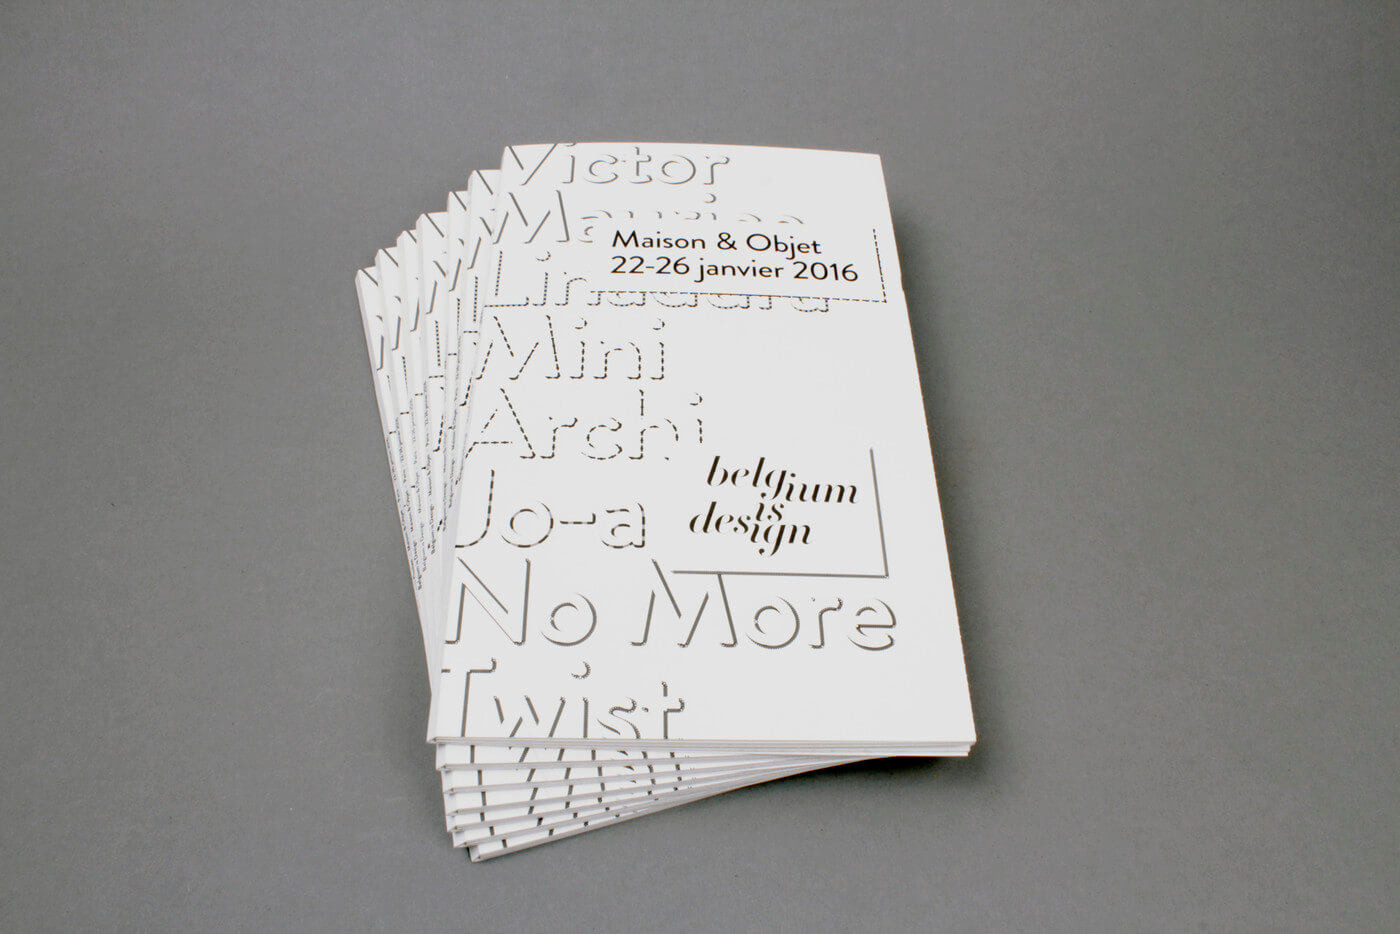 Victor
Maison & Objet
22-26 janvier 2016
Mini
Archi
Jo-a
belgium
is
design
No More
Twist